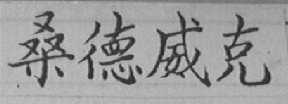 桑德威克